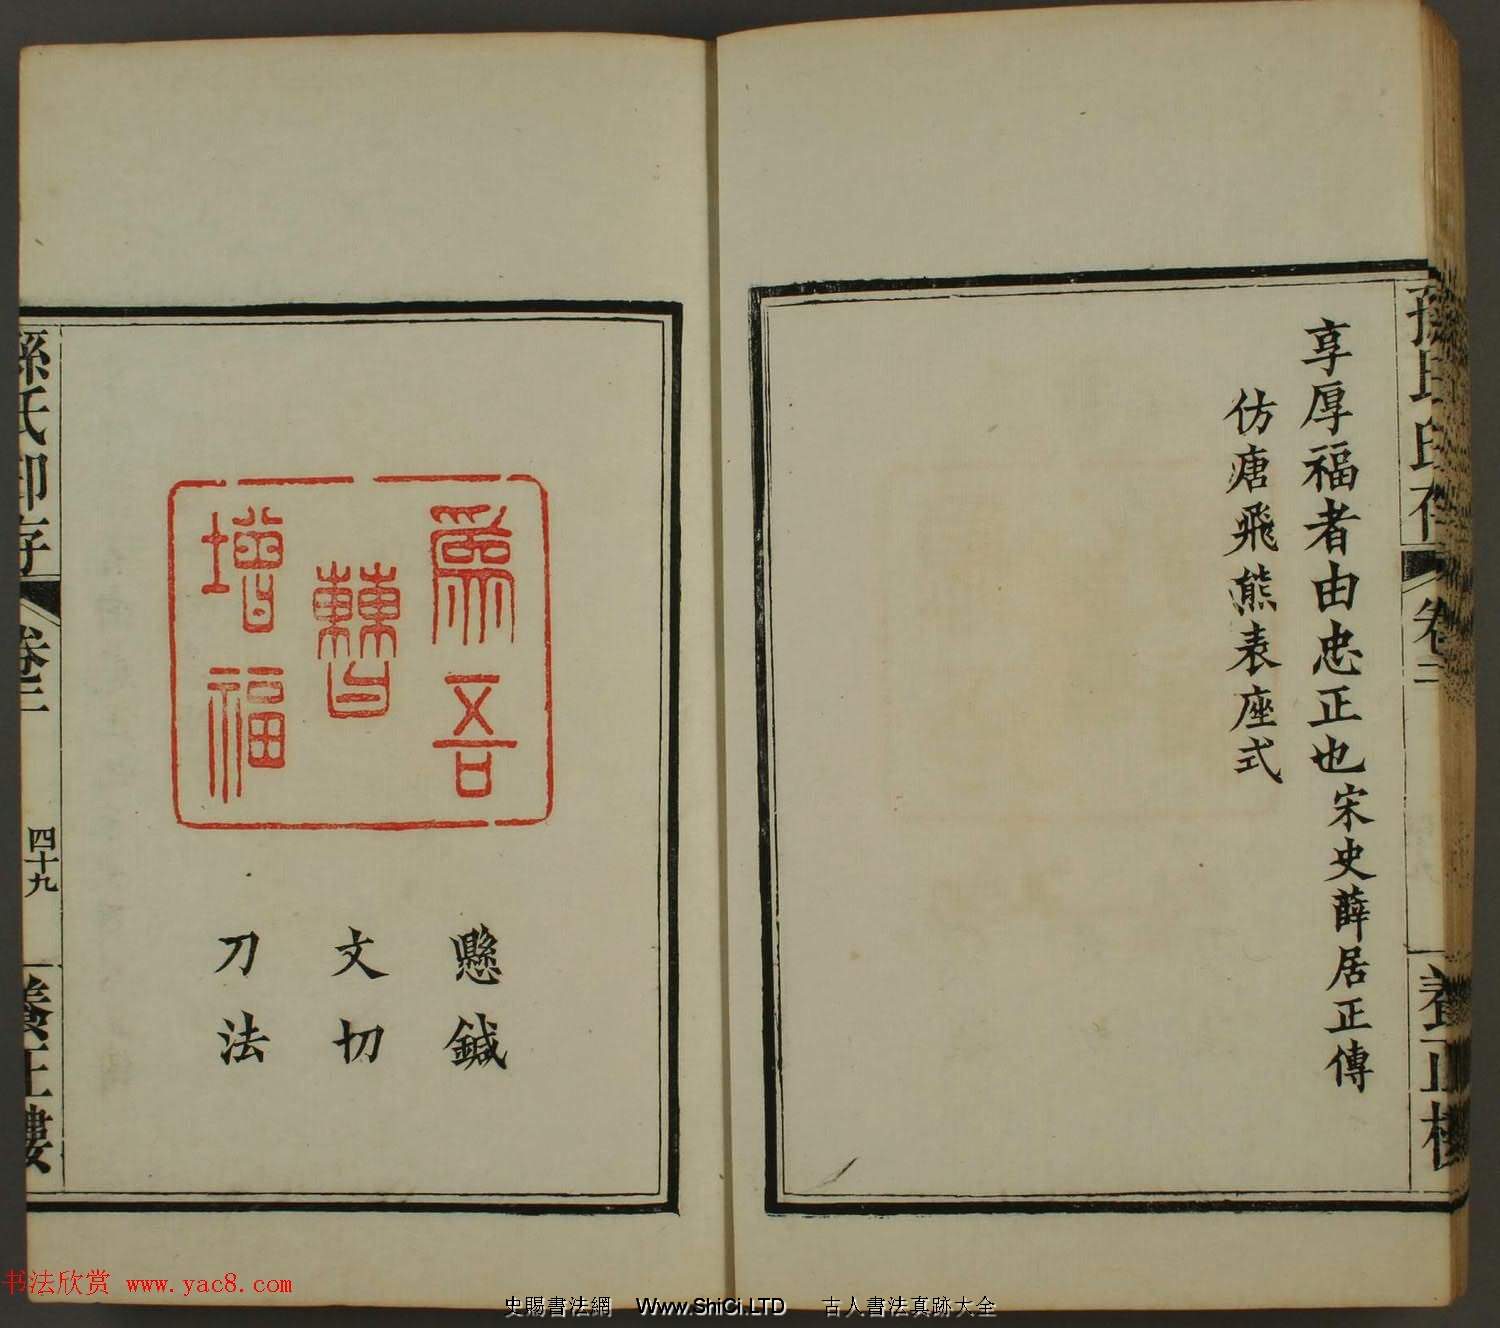 享厚福者由忠正也宋史薛居正傳
仿唐飛熊表座式
卷二
養正樓
為吾
曹
增福
懸鍼
文切
刀法
孫氏印存
卷二
四十九
養正樓
书法欣赏 www.yac8.com
史賜書法網 Www.ShiCi.LTD 古人書法真跡大全